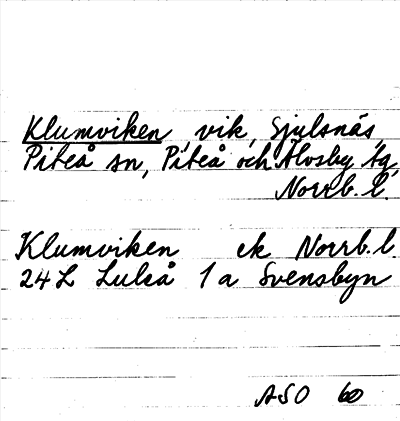 Klumviken, vik, Sjulsnäs,
Piteå sn, Piteå och Älvsby tg,
Norrb. l.
Klumviken ek Norrb. l.
24 L Luleå 1 a Svensbyn
ASO 60